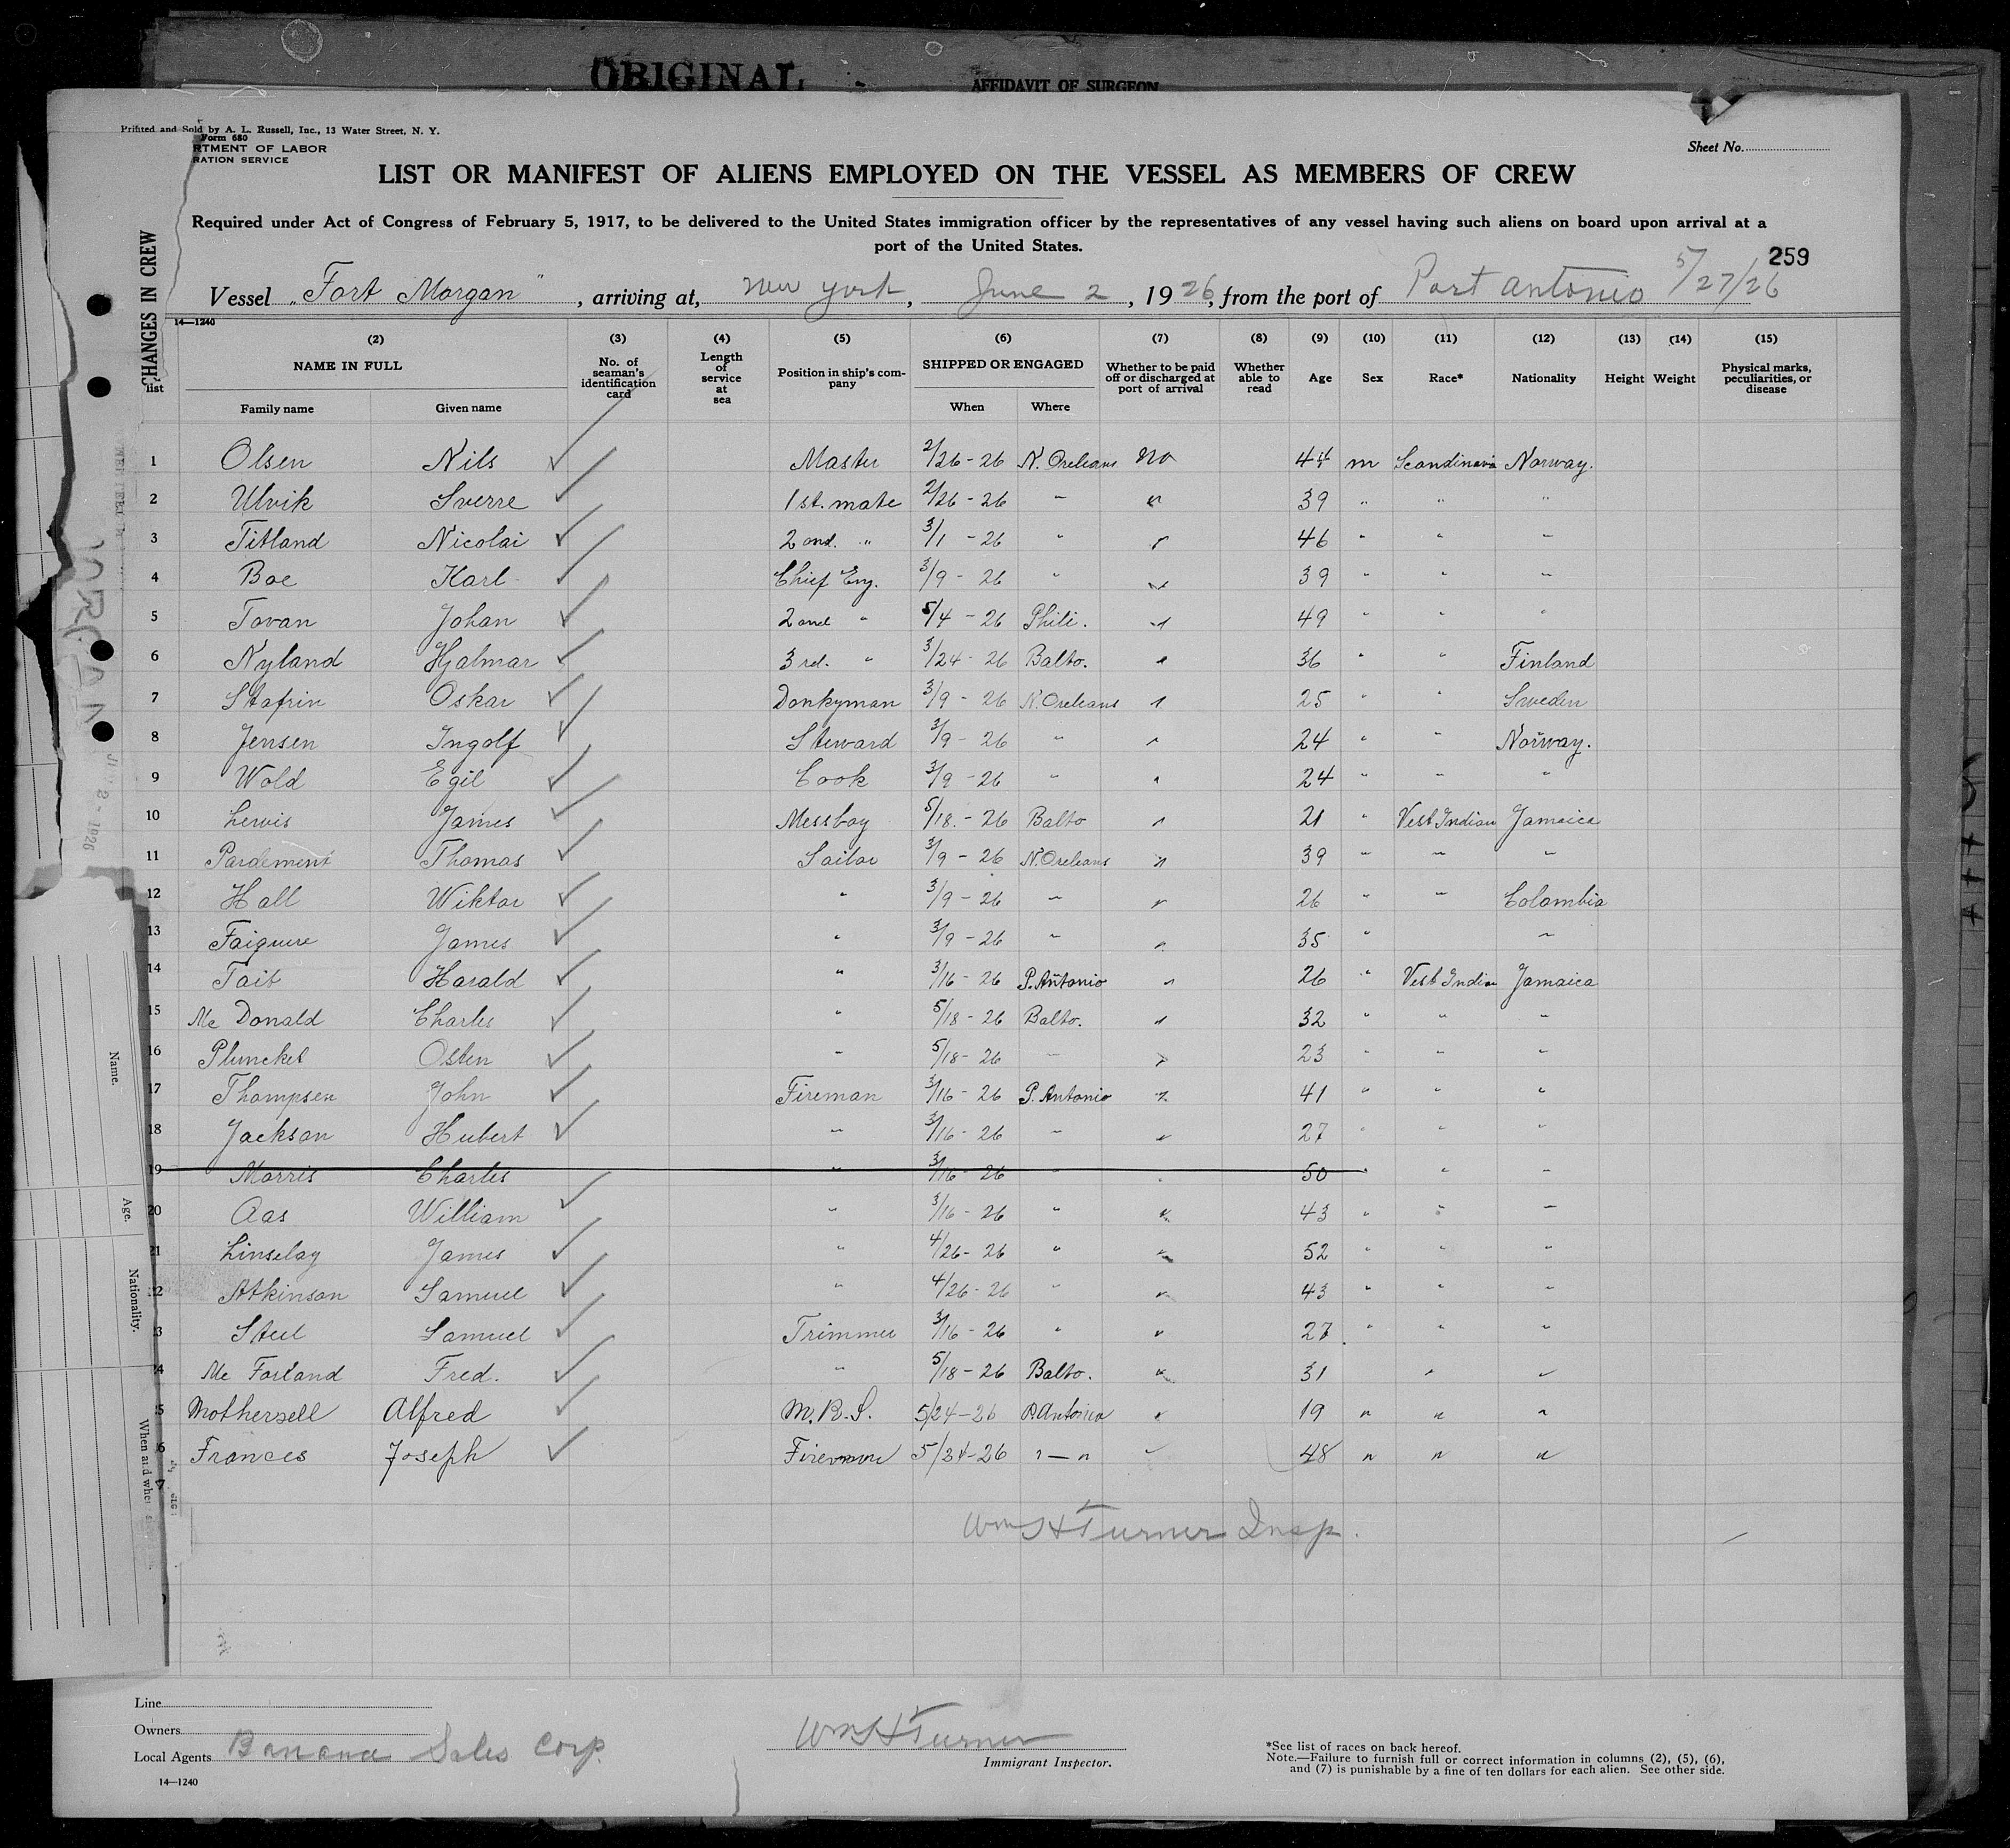 ORIGINAL
AFFIDAVIT OF SURGEON
Printed and Sold by A. L. Russell, Inc., 13 Water Street, N. Y.
Form 680
RTMENT OF LABOR
RATION SERVICE
Sheet No.
LIST OR MANIFEST OF ALIENS EMPLOYED ON THE VESSEL AS MEMBERS OF CREW
Required under Act of Congress of February 5, 1917, to be delivered to the United States immigration officer by the representatives of any vessel having such aliens on board upon arrival at a
port of the United States.
259
Vessel "Fort Morgan", arriving at, New York, June 2, 1926, from the port of Port Antonio 5/27/26
14—1240
CHANGES IN CREW
list
(2) (3) (4) (5) (6) (7) (8) (9) (10) (11) (12) (13) (14) (15)
NAME IN FULL
Family name Given name
No. of seaman's identification card
Length of service at sea
Position in ship's company
SHIPPED OR ENGAGED
When Where
Whether to be paid off or discharged at port of arrival
Whether able to read
Age Sex Race* Nationality Height Weight
Physical marks, peculiarities, or disease
1 Olsen Nils Master 2/26-26 N. Orleans No 44 m Scandinavia Norway.
2 Ulvik Sverre 1st. mate 2/26-26 " " 39 " " "
3 Titland Nicolai 2ond. " 3/1 - 26 " " 46 " " "
4 Boe Karl Chief Eng. 3/9 - 26 " " 39 " " "
5 Tovan Johan 2ond " 5/4 - 26 Phili. " 49 " " "
6 Nyland Hjalmar 3rd. " 3/24 - 26 Balto. " 36 " " Finland
7 Stafrin Oskar Donkyman 3/9 - 26 N. Orleans " 25 " " Sweden
8 Jensen Ingolf Steward 3/9 - 26 " " 24 " " Norway.
9 Wold Egil Cook 3/9 - 26 " " 24 " " "
10 Lewis James Messboy 5/18. - 26 Balto " 21 " Vest Indian Jamaica
11 Pardement Thomas Sailor 3/9 - 26 N. Orleans " 39 " " "
12 Hall Wiktor " 3/9 - 26 " " 26 " " Colombia
13 Faiquere James " 3/9 - 26 " " 35 " "
14 Tait Harald " 3/16 - 26 P. Antonio " 26 " Vest Indian Jamaica
15 Mc Donald Charles " 5/18 - 26 Balto. " 32 " " "
16 Pluncket Osten " 5/18 - 26 " " 23 " " "
17 Thompsen John Fireman 3/16 - 26 P. Antonio " 41 " " "
18 Jackson Hubert " 3/16 - 26 " " 27 " " "
19 Morris Charles " 3/16 - 26 " " 50 " " "
20 Aas William " 3/16 - 26 " " 43 " " "
21 Linselay James " 4/26 - 26 " " 52 " " "
22 Atkinson Samuel " 4/26 - 26 " " 43 " " "
3 Steel Samuel Trimmer 3/16 - 26 " " 27 " " "
4 Mc Farland Fred. " 5/18 - 26 Balto. " 31 " "
5 Mothersell Alfred M.R.S. 5/24-26 P. Antonio " 19 " " "
6 Frances Joseph Fireman 5/24-26 " — " " 48 " " "
7
Wm H Turner Insp.
Name.
Age.
Nationality.
When and whe
Line
Owners
Local Agents Banana Sales Corp.
14—1240
Wm H Turner
Immigrant Inspector.
*See list of races on back hereof.
Note.—Failure to furnish full or correct information in columns (2), (5), (6),
and (7) is punishable by a fine of ten dollars for each alien. See other side.